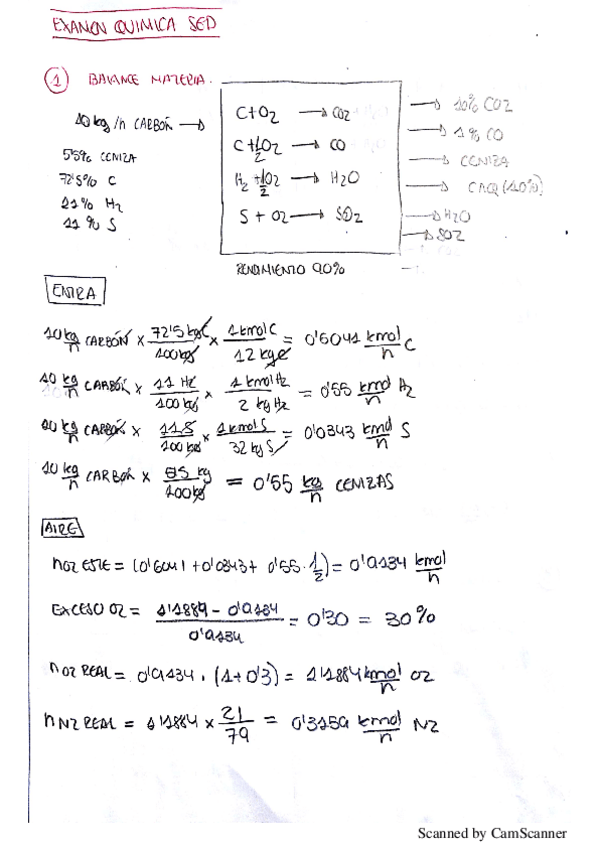 EXAMEN QUIMICA SED
1 BALANCE MATERIA.
10 kg/h CARBÓN →
5'5% CENIZA
72'5% C
11% H2
11% S
C+O2 → CO2
C+1/2O2 → CO
H2+1/2O2 → H2O
S + O2 → SO2
→ 10% CO2
→ 1% CO
→ CENIZA
→ CAQ (10%)
→ H2O
→ SO2
RENDIMIENTO 90%
ENTRA
10 kg/h CARBÓN x 72'5 kgC/100kg x 1 kmol C/12 kgC = 0'6041 kmol/h C
10 kg/h CARBÓN x 11 H2/100 kg x 1 kmol H2/2 kg H2 = 0'55 kmol/h H2
10 kg/h CARBÓN x 11 S/100kg x 1 kmol S/32 kg S = 0'0343 kmol/h S
10 kg/h CARBÓN x kg/100kg = 0'55 kg/h CENIZAS
AIRE
nO2 ESTE = (0'6041 + 0'0343 + 0'55 · 1/2) = 0'9134 kmol/h
EXCESO O2 = 1'1889 - 0'9134/0'9134 = 0'30 = 30%
nO2 REAL = 0'9134 · (1+0'3) = 1'1884 kmol/h O2
nN2 REAL = 1'1884 x 21/79 = 0'3159 kmol/h N2
Scanned by CamScanner